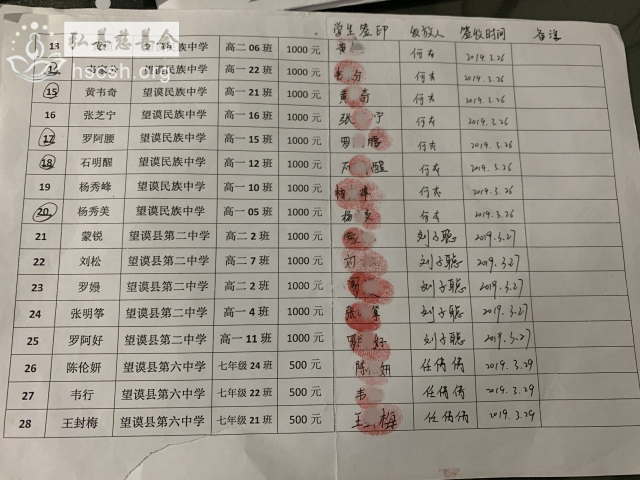 弘慧慈善基金会
hscsh.org
学生签印 发放人 签收时间 备注
13 望谟民族中学 高二 06 班 1000 元 黄 何六 2019.3.26
望谟民族中学 高一 22 班 1000 元 何六 2019.3.26
15 黄韦奇 望谟民族中学 高一 21 班 1000 元 黄 奇 何六 2019.3.26
16 张芝宁 望谟民族中学 高一 16 班 1000 元 张 宁 何六 2019.3.26
17 罗阿腰 望谟民族中学 高一 15 班 1000 元 罗 腰 何六 2019.3.26
18 石明醒 望谟民族中学 高一 12 班 1000 元 石 醒 何六 2019.3.26
19 杨秀峰 望谟民族中学 高一 10 班 1000 元 杨 峰 何六 2019.3.26
20 杨秀美 望谟民族中学 高一 05 班 1000 元 杨 美 何六 2019.3.26
21 蒙锐 望谟县第二中学 高二 2 班 1000 元 刘子聪 2019.3.27
22 刘松 望谟县第二中学 高二 7 班 1000 元 刘 刘子聪 2019.3.27
23 罗嫚 望谟县第二中学 高二 2 班 1000 元 刘子聪 2019.3.27
24 张明筝 望谟县第二中学 高一 4 班 1000 元 张 筝 刘子聪 2019.3.27
25 罗阿好 望谟县第二中学 高一 11 班 1000 元 罗 好 刘子聪 2019.3.27
26 陈伦妍 望谟县第六中学 七年级 24 班 500 元 陈 妍 任倩倩 2019.3.29
27 韦行 望谟县第六中学 七年级 22 班 500 元 韦 任倩倩 2019.3.29
28 王封梅 望谟县第六中学 七年级 21 班 500 元 王 梅 任倩倩 2019.3.29